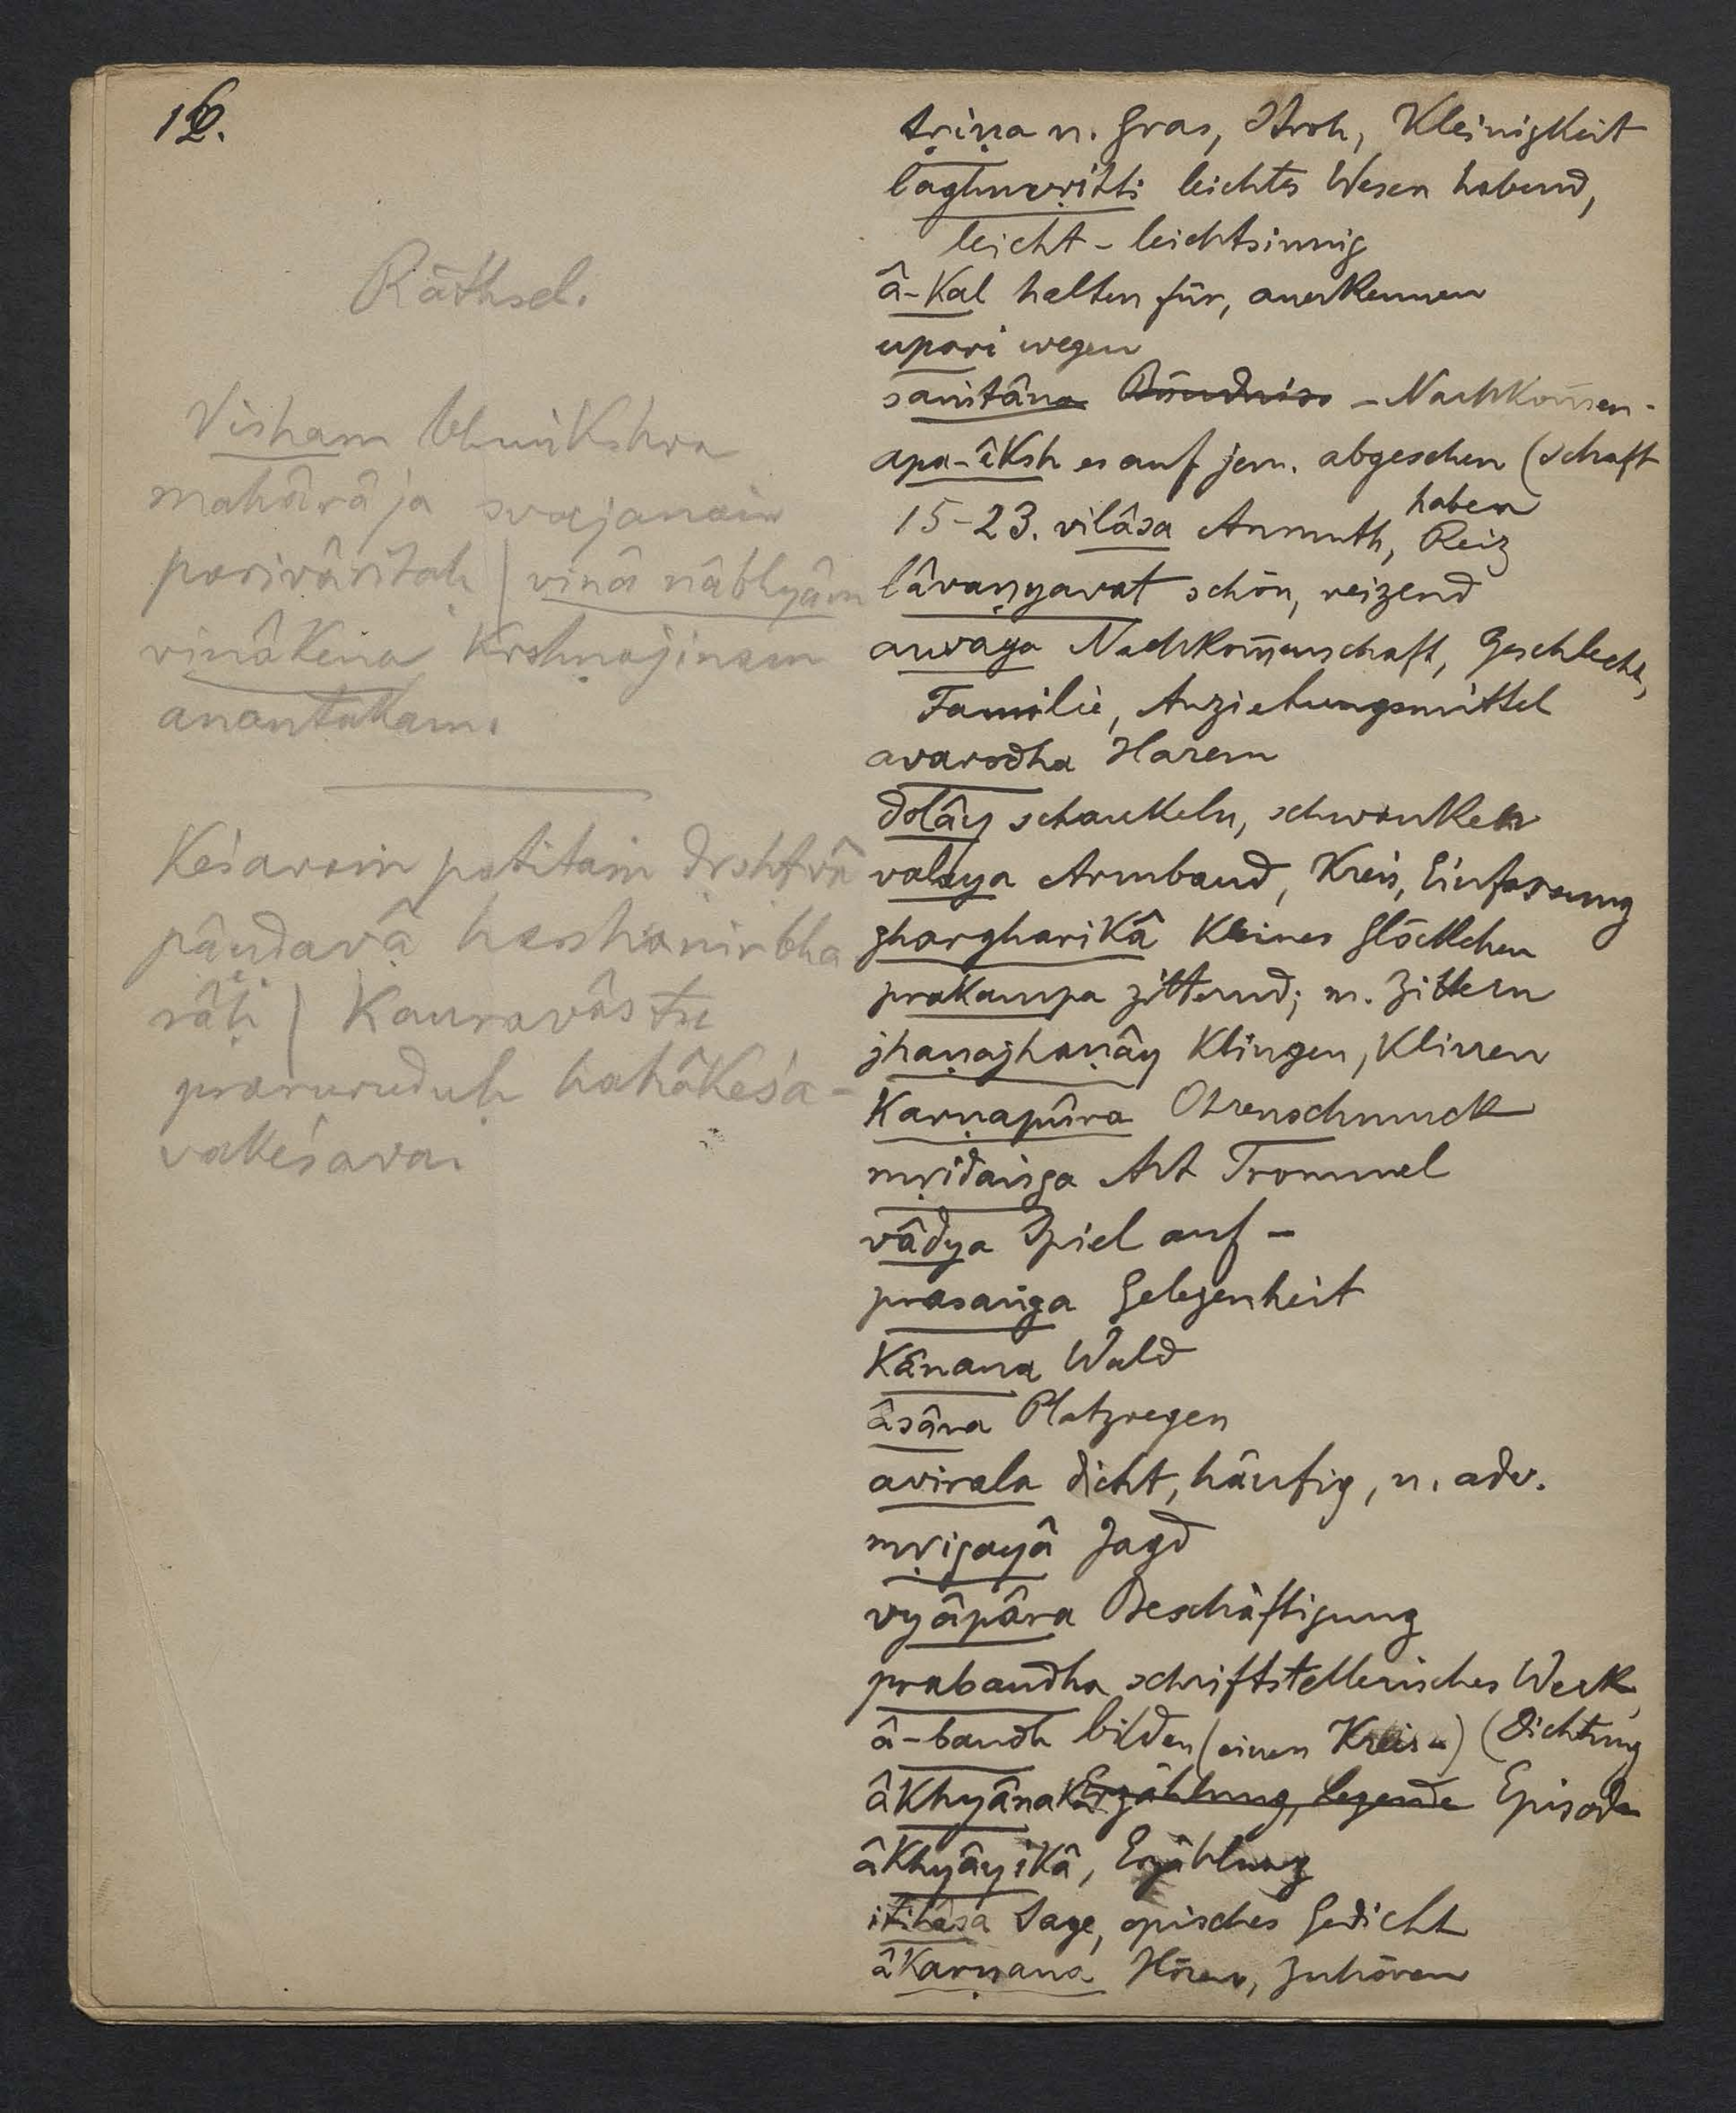 16.
Räthsel.
Visham bhuṅkshva
mahârâja svajanaiḥ
parivâritaḥ | vinâ nâbhyâm
vinâkena kṛshṇajinam
anantakam.
Keśavaṁ patitaṁ dṛshṭvâ
pâṇḍavâ harshanirbha
râḥ | Kauravâstu
praruruduḥ hahâkeśa-
vakeśava.
tṛiṇa n. Gras, Stroh, Kleinigkeit
laghuvṛitti leichtes Wesen habend,
leicht - leichtsinnig
â-kal halten für, anerkennen
upari wegen
saṁtâna Bündniss - Nachkom̄en-
apa-îksh es auf jem. abgesehen (schaft
haben
15-23. vilâsa Anmuth, Reiz
lâvaṇyavat schön, reizend
anvaya Nachkom̄enschaft, Geschlecht,
Familie, Anziehungsmittel
avarodha Harem
dolây schaukeln, schwanken
valaya Armband, Kreis, Einfassung
ghargharikâ kleines Glöckchen
prakampa zitternd; m. Zittern
jhaṇajhaṇây klingen, klirren
karṇapûra Ohrenschmuck
mṛidaṅga Art Trommel
vâdya Spiel auf -
prasaṅga Gelegenheit
kânana Wald
âsâra Platzregen
avirala dicht, häufig, n. adv.
mṛigayâ Jagd
vyâpâra Beschäftigung
prabandha schriftstellerisches Werk,
â-bandh bilden (einen Kreis -) (Dichtung
âkhyânaka Erzählung, Legende Episode
âkhyâyikâ, Erzählung
itihâsa Sage, episches Gedicht
âkarṇana Hören, Zuhören